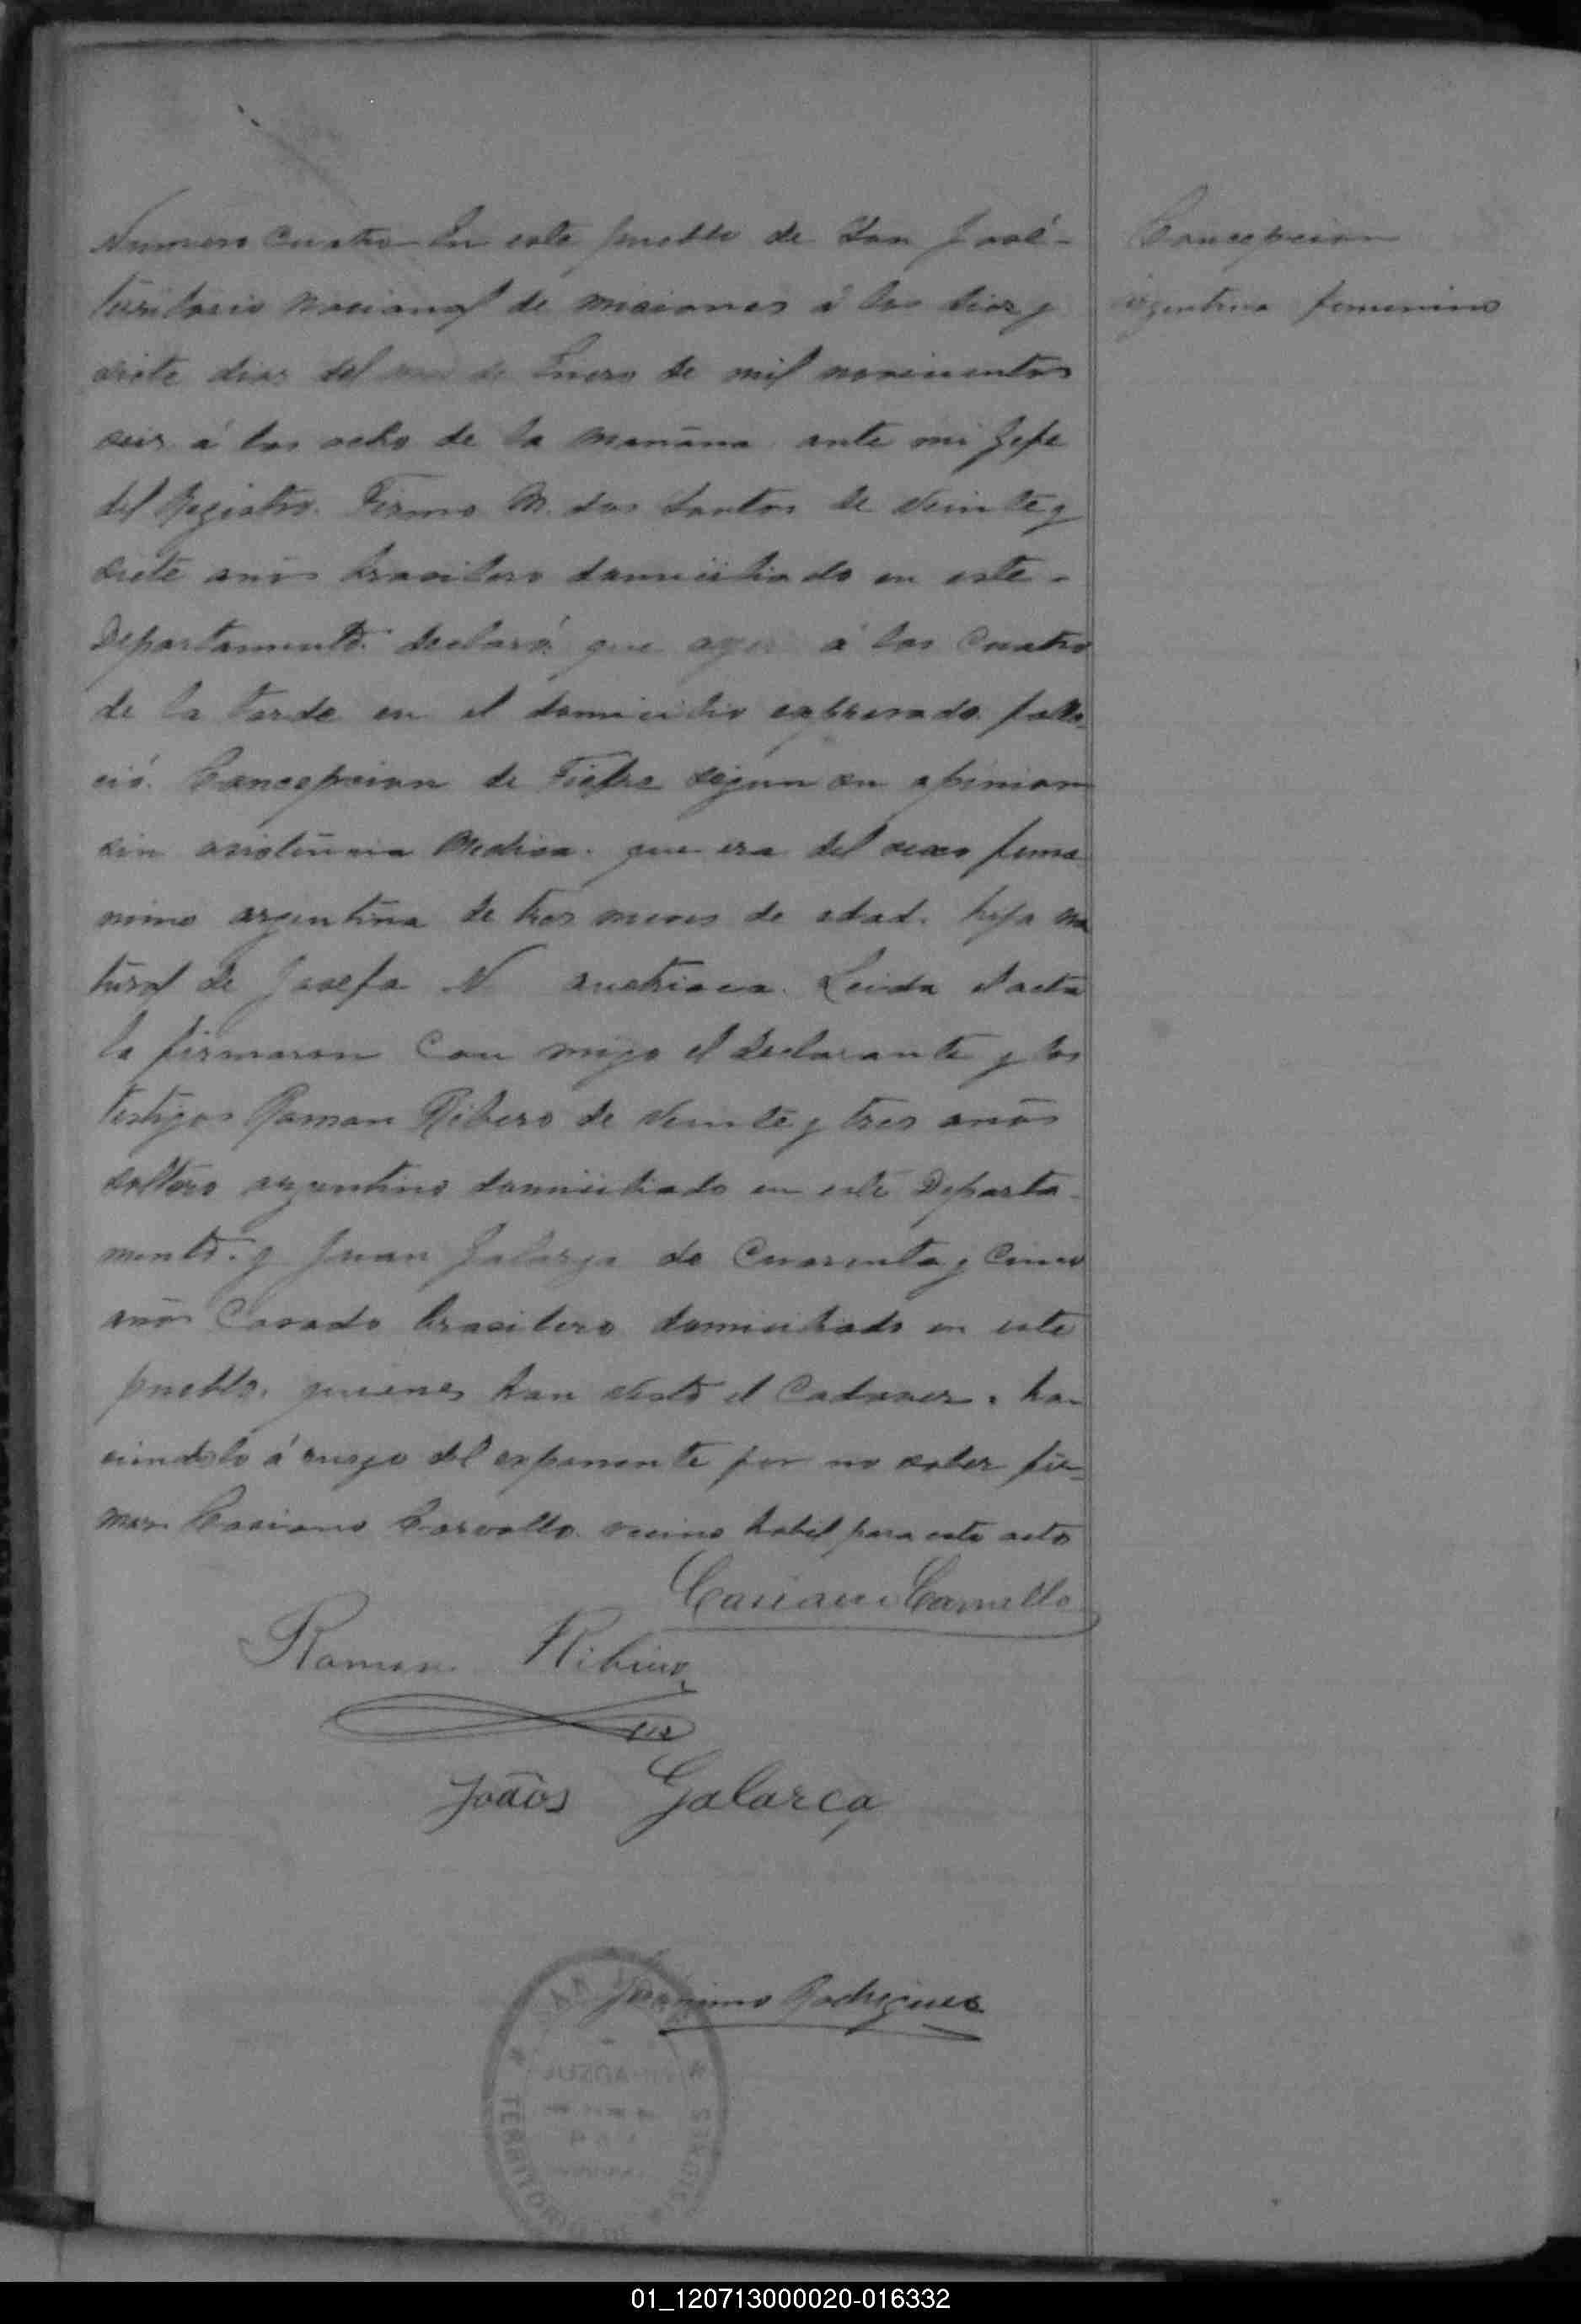 Numero Cuatro En este pueblo de San José-
Concepcion
territorio nacional de misiones á los diez y
argentina femenino
siete dias del mes de Enero de mil novecientos
seis á las ocho de la mañana ante mi Jefe
del Registro. Firmo M. dos Santos de veinte y
siete años brasilero domiciliado en este-
Departamento. declaró: que ayer á las Cuatro
de la tarde en el domicilio expresado. falle-
ció. Concepcion de Fiebre segun su opinion
sin asistencia Medica. que era del sexo feme
nino argentina de tres meses de edad. hija na
tural de Josefa N austriaca. Leida el acta
la firmaron Con migo el declarante y los
testigos Roman Ribero de veinte y tres años
soltero argentino domiciliado en este Departa-
mento. y Juan Galarza de Cuarenta y Cinco
años Casado brasilero domiciliado en este
pueblo. quienes han visto el Cadaver. ha-
ciendolo á ruego del exponente por no saber fir-
mar Casiano Carvallo. vecino habil para este acto
Casiano Carvallo
Roman Ribero
Joãos Galarça
Geronimo Rodriguez
TERRITORIO DE MISIONES
01_120713000020-016332